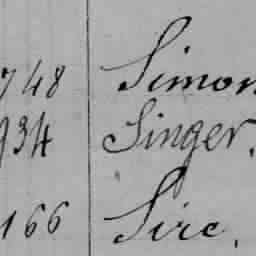 748 Simon
934 Singer.
166 Sirc.